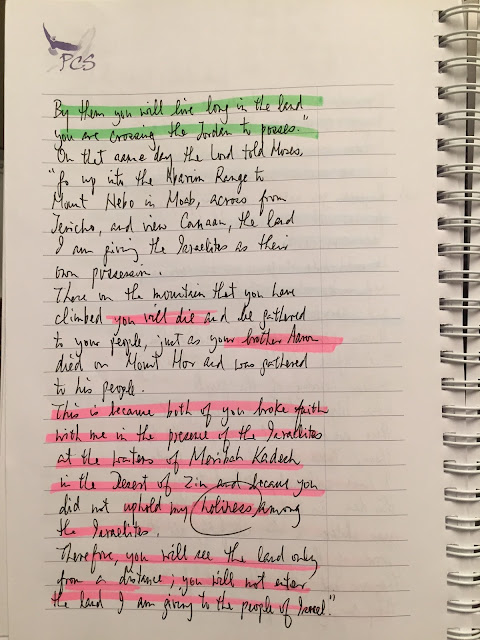 PCS
By them you will live long in the land
you are crossing the Jordan to posses."
On that same day the Lord told Moses,
"Go up into the Abarim Range to
Mount Nebo in Moab, across from
Jericho, and view Canaan, the land
I am giving the Israelites as their
own possession.
There on the mountain that you have
climbed you will die and be gathered
to your people, just as your brother Aaron
died on Mount Hor and was gathered
to his people.
This is because both of you broke faith
with me in the presence of the Israelites
at the waters of Meribah Kadesh
in the Desert of Zin and because you
did not uphold my holiness among
the Israelites.
Therefore, you will see the land only
from a distance; you will not enter
the land I am giving to the people of Israel."